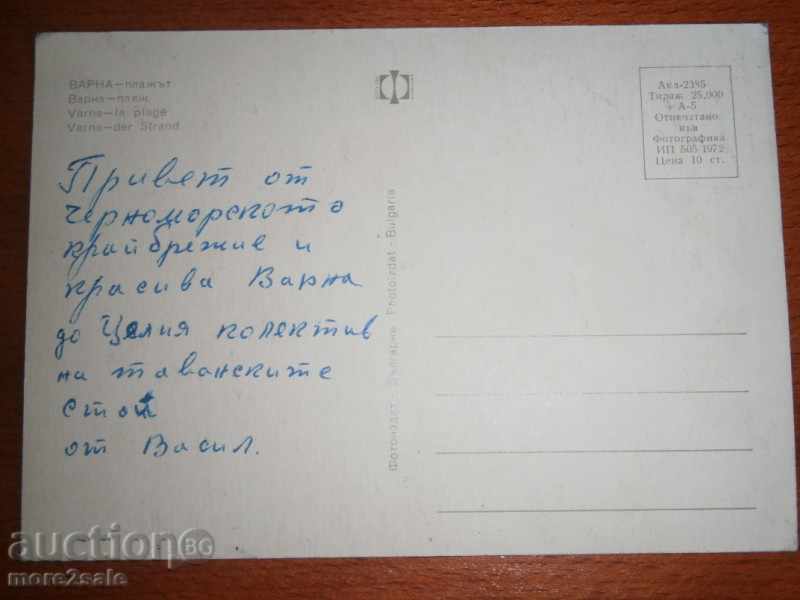 ВАРНА—плажът
Варна—пляж
Varna—la plage
Varna—der Strand
Привет от
Черноморското
крайбрежие и
красива Варна
до Целия колектив
на таванските
стаи
от Васил.
Фотоиздат · България Photo-izdat · Bulgaria
Акл-2385
Тираж 25,000
+ А-5
Отпечатано
във
Фотографика
ИП 505 1972
Цена 10 ст.
auctionBG
more2sale